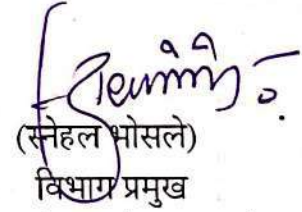 (स्नेहल भोसले)
विभाग प्रमुख